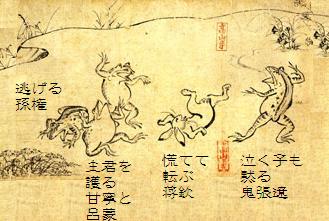 逃げる
孫権
主君を
護る
甘寧と
呂蒙
慌てて
転ぶ
蒋欽
泣く子も
黙る
鬼張遼